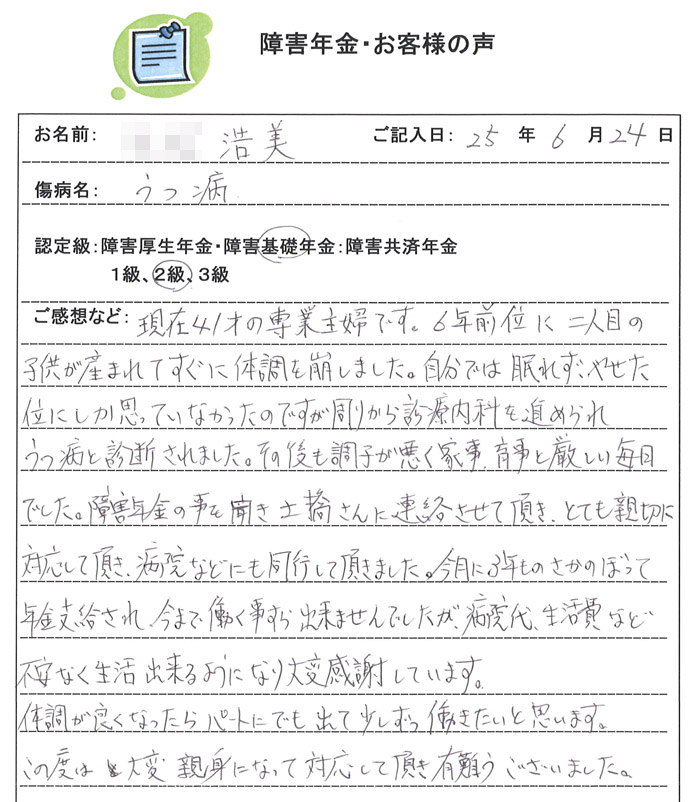 障害年金・お客様の声
お名前: 浩美 ご記入日: 25 年 6 月 24 日
傷病名: うつ病
認定級:障害厚生年金・障害基礎年金:障害共済年金
1級、2級、3級
ご感想など: 現在41才の専業主婦です。6年前位に二人目の
子供が産まれてすぐに体調を崩しました。自分では眠れず、やせた
位にしか思っていなかったのですが周りから診療内科を進められ
うつ病と診断されました。その後も調子が悪く家事、育事と厳しい毎日
でした。障害年金の事を聞き土橋さんに連絡させて頂き、とても親切に
対応して頂き、病院などにも同行して頂きました。今月に3年ものさかのぼって
年金支給され、今まで働く事すら出来ませんでしたが、病院代、生活費など
不安なく生活出来るようになり大変感謝しています。
体調が良くなったらパートにでも出て少しずつ働きたいと思います。
この度は大変親身になって対応して頂き有難うございました。